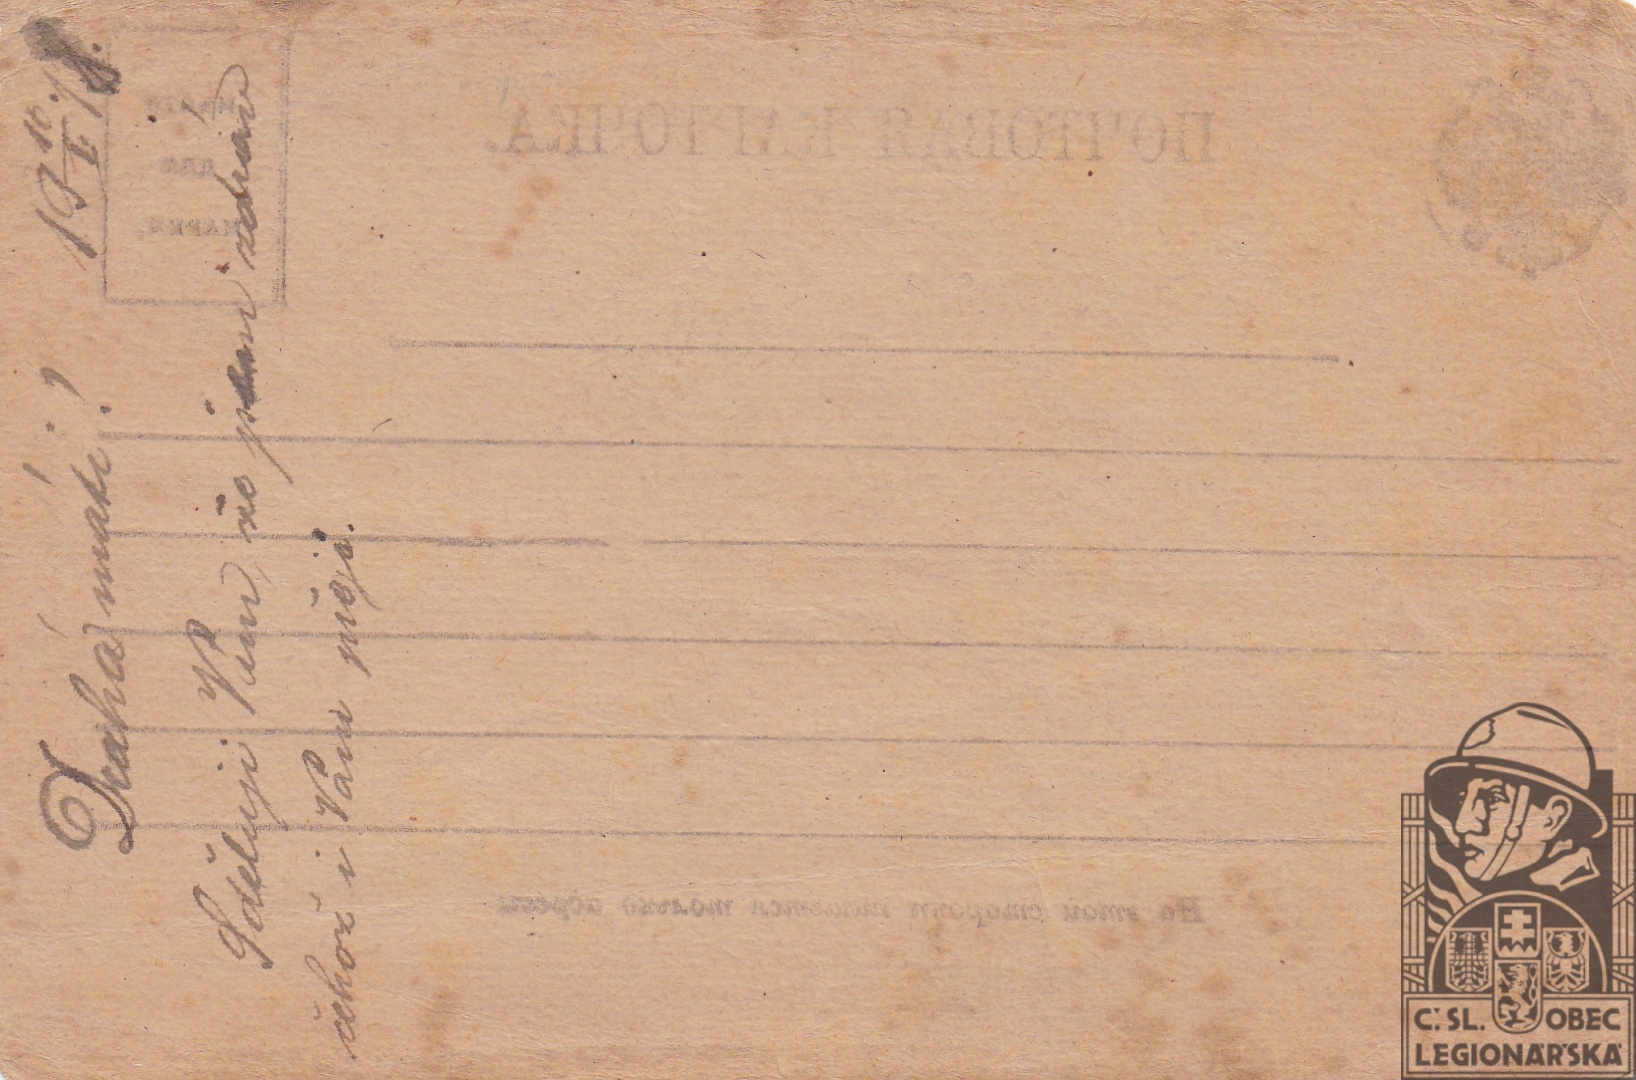 19 16./I. 18.
Drahá mati!
Sděluji Vám, že jsem zdráv
čehož i Vám přeji.
ПОЧТОВАЯ КАРТОЧКА.
МѢСТО
ДЛЯ
МАРКИ.
На этой сторонѣ пишется только адресъ
Č.SL. OBEC
LEGIONÁŘSKÁ